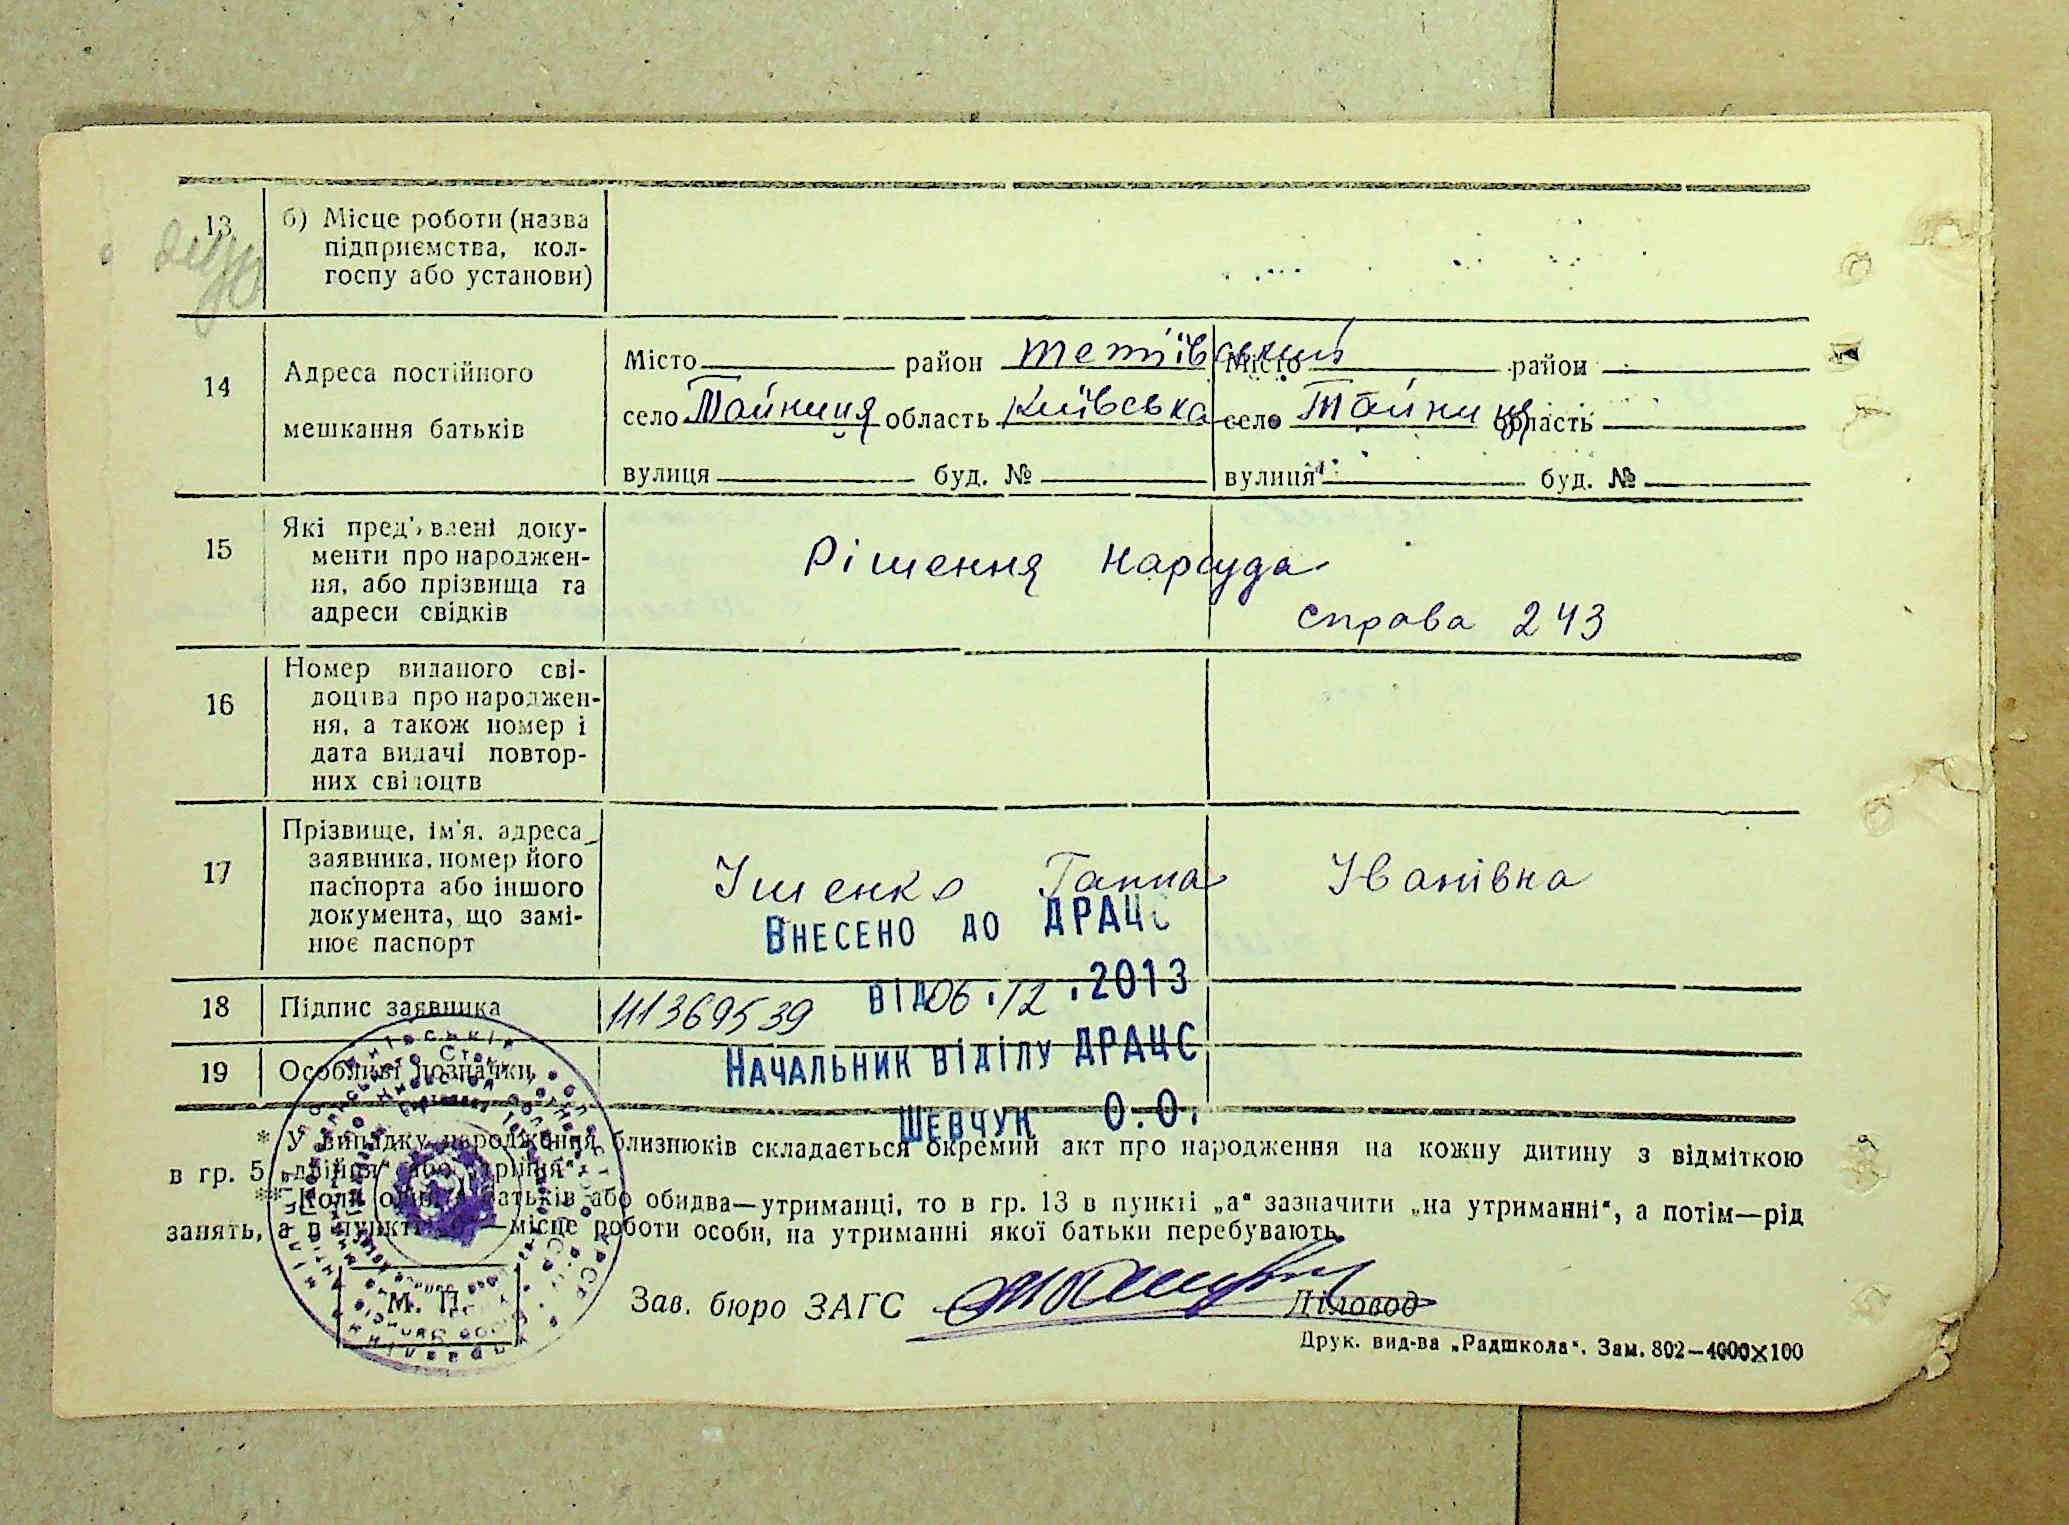 13
б) Місце роботи (назва
підприємства, кол-
госпу або установи)
14
Адреса постійного
мешкання батьків
Місто район Тетіївський Місто район
село Тайниця область Київська село Тайниця область
вулиця буд. № вулиця буд. №
15
Які пред'явлені доку-
менти про народжен-
ня, або прізвища та
адреси свідків
Рішення Нарсуда
справа 243
16
Номер виданого сві-
доцтва про народжен-
ня, а також номер і
дата видачі повтор-
них свідоцтв
17
Прізвище, ім'я, адреса
заявника, номер його
паспорта або іншого
документа, що замі-
нює паспорт
Ищенко Ганна Іванівна
Внесено до ДРАЦС
18
Підпис заявника
111369539
від 06.12.2013
19
Особливі позначки
Начальник відділу ДРАЦС
Шевчук О.О.
* У випадку народження близнюків складається окремий акт про народження на кожну дитину з відміткою
в гр. 5 „двійня“ або „трійня“.
** Коли один з батьків або обидва—утриманці, то в гр. 13 в пункті „а“ зазначити „на утриманні“, а потім—рід
занять, а в пункті —місце роботи особи, на утриманні якої батьки перебувають.
М. П.
Зав. бюро ЗАГС Діловод
Друк. вид-ва „Радшкола“. Зам. 802—4000×100